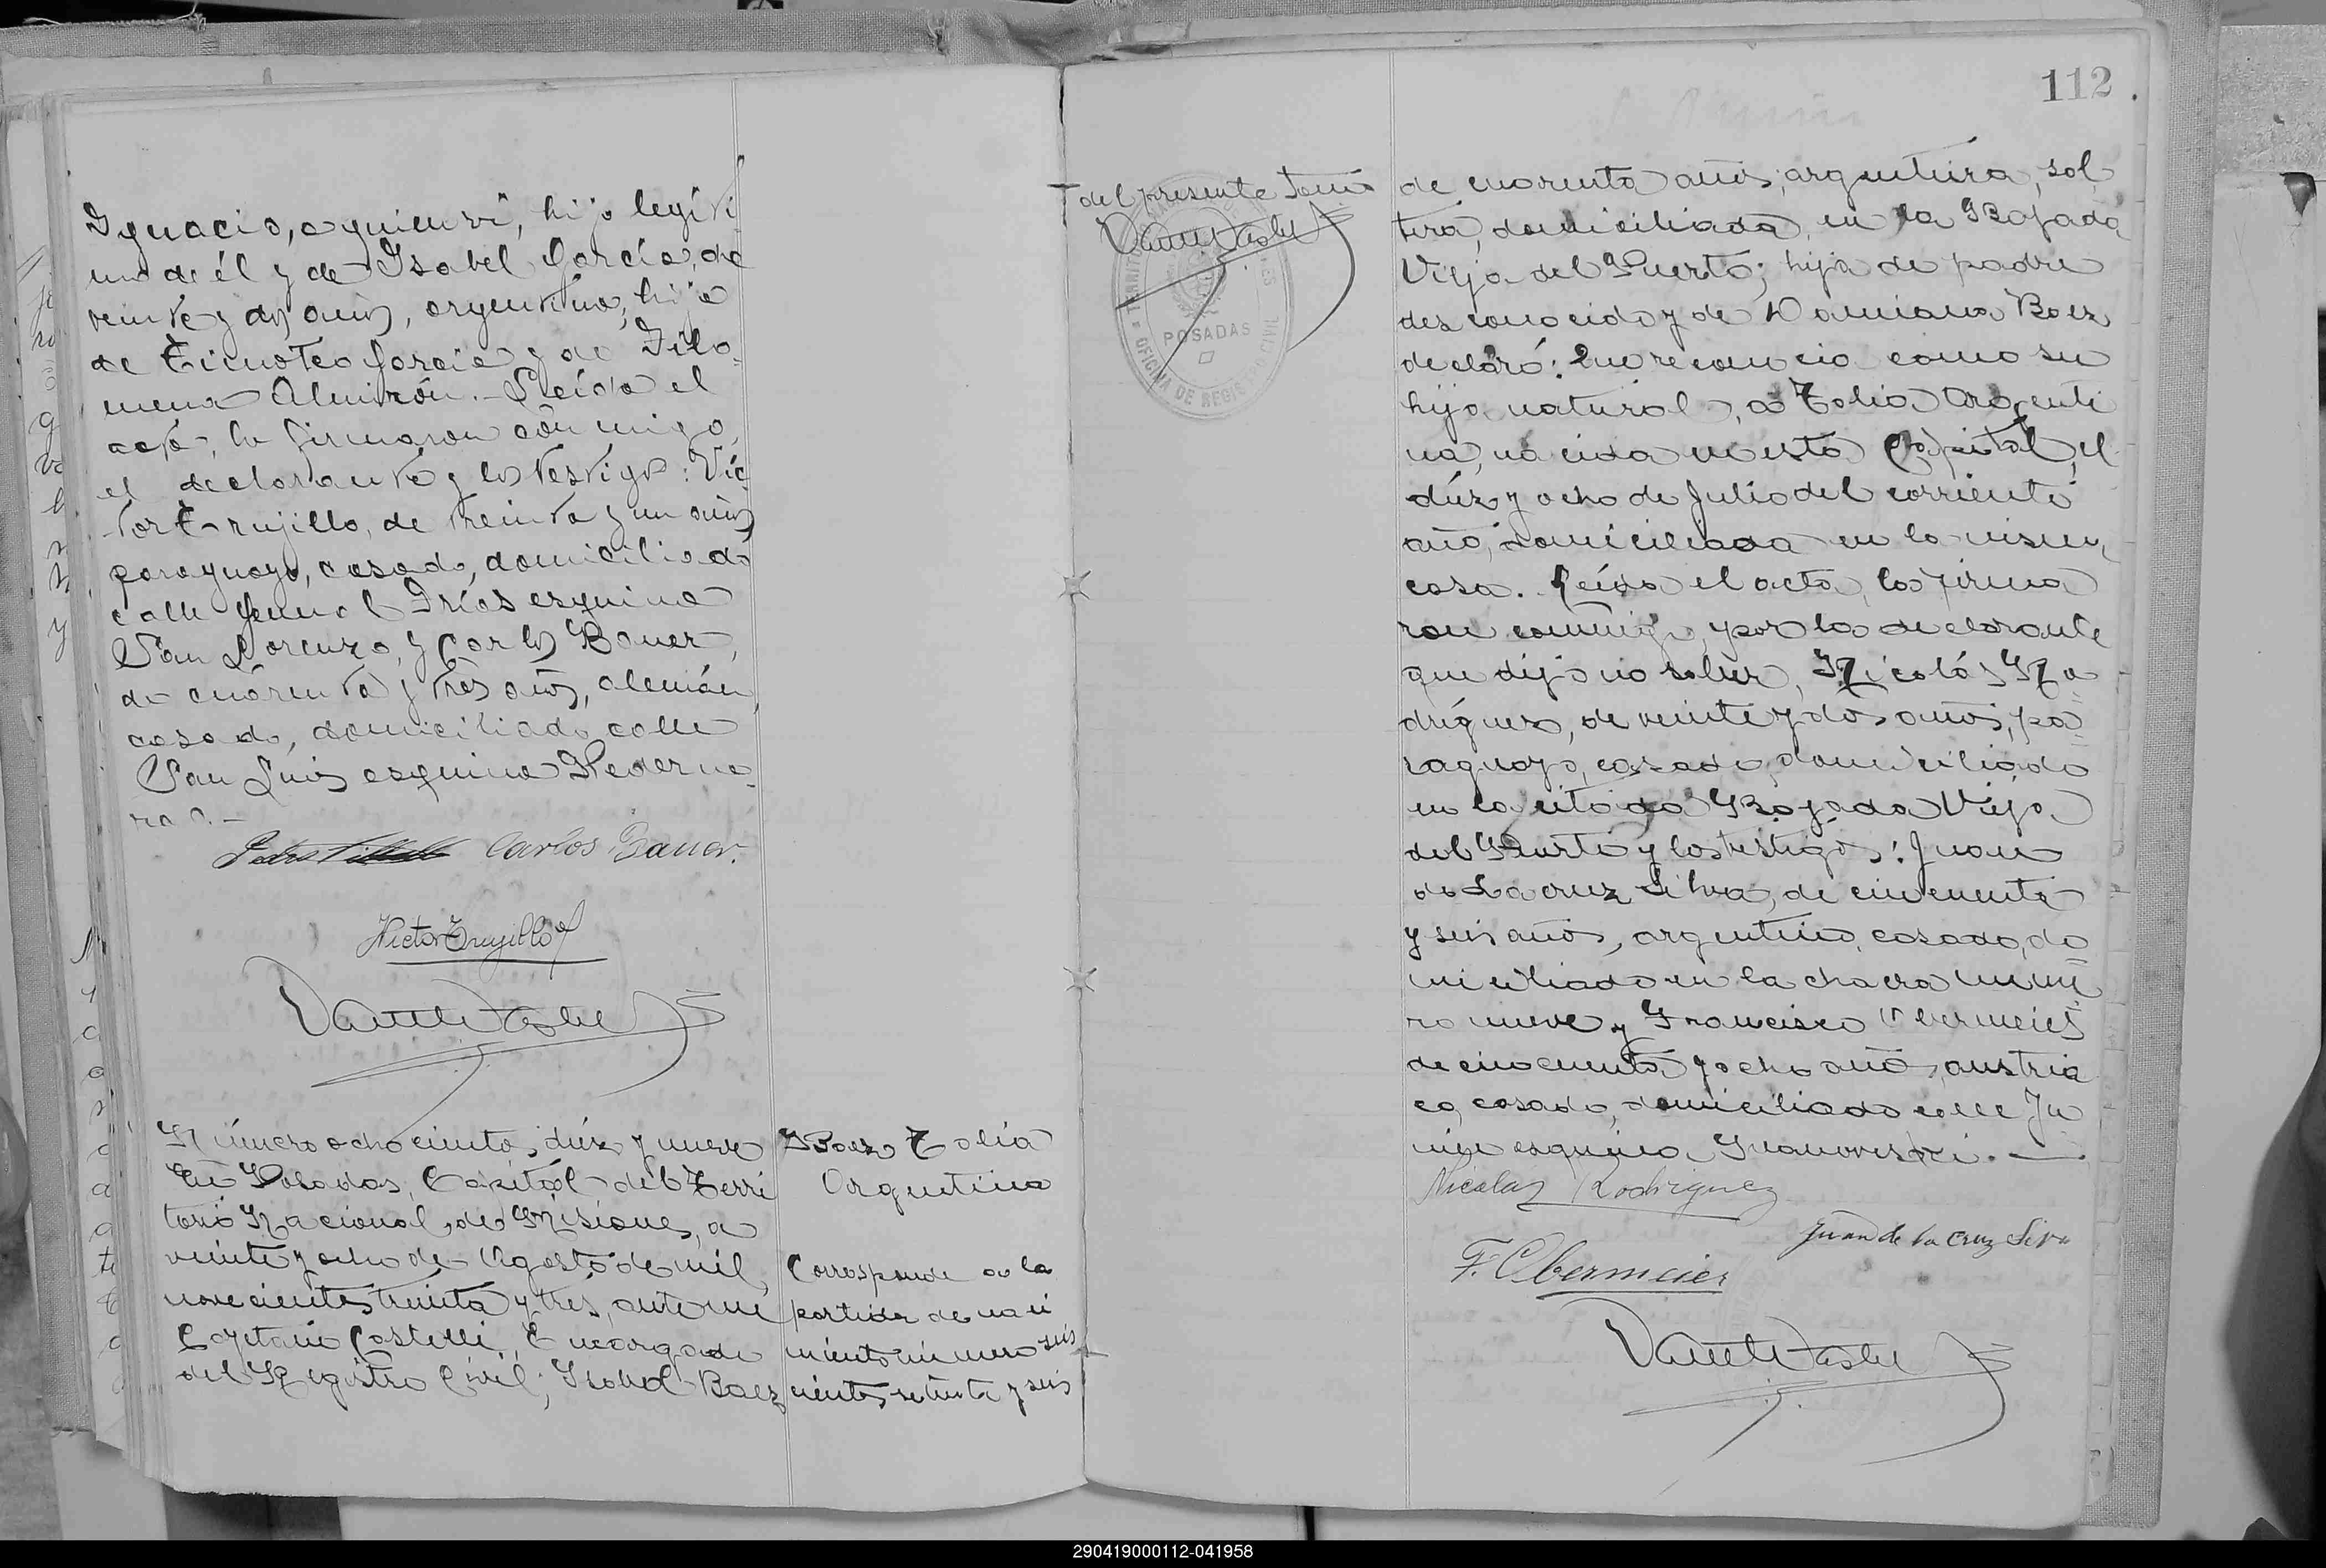 Ygnacio, a quien vi, hijo legíti
mo de él y de Ysabel García, de
veinte y dos años, argentina, hija
de Timoteo García y de Filo-
mena Almirón.- Leída el
acta, la firmaron conmigo,
el declarante y los testigos: Víc
tor Trujillo, de treinta y un años
paraguayo, casado, domiciliado
calle General Frías esquina
San Lorenzo, y Carlos Bauer,
de cuarenta y tres años, alemán,
casado, domiciliado calle
San Luis esquina Pederne
ra.-
Carlos Bauer.
Victor Trujillo
Número ochocientos diez y nueve
En Posadas, Capital del Terri
torio Nacional de Misiones, a
veinte y ocho de Agosto de mil
novecientos treinta y tres, ante mí
Cayetano Castelli, Encargado
del Registro Civil; Isabel Baez
Baez Tolia
Argentina
Corresponde a la
partida de naci
miento número seis
cientos setenta y seis
112
del presente tomo
POSADAS
OFICINA DE REGISTRO CIVIL
de cuarenta años, argentina, sol
tera, domiciliada en la Bajada
Vieja del Puerto; hija de padre
desconocido y de Damiana Baez
declaró: Que reconocio como su
hija natural, a Tolia Argenti
na, nacida en esta Capital, el
diez y ocho de Julio del corriente
año, domiciliada en la misma
casa. Leída el acta, la firma
ron conmigo, y por la declarante
que dijo no saber, Nicolás Ro
dríguez, de veinte y dos años, pa
raguayo, casado, domiciliado
en la citada Bajada Vieja
del Puerto y los testigos: Juan
de la Cruz Silva, de cincuenta
y seis años, argentino, casado, do
miciliado en la chacra núme
ro nueve y Francisco Obermeier
de cincuenta y ocho años, austria
co, casado, domiciliado calle Ju
nín esquina
Nicolas Rodriguez
Juan de la Cruz Silva
F. Obermeier
290419000112-041958